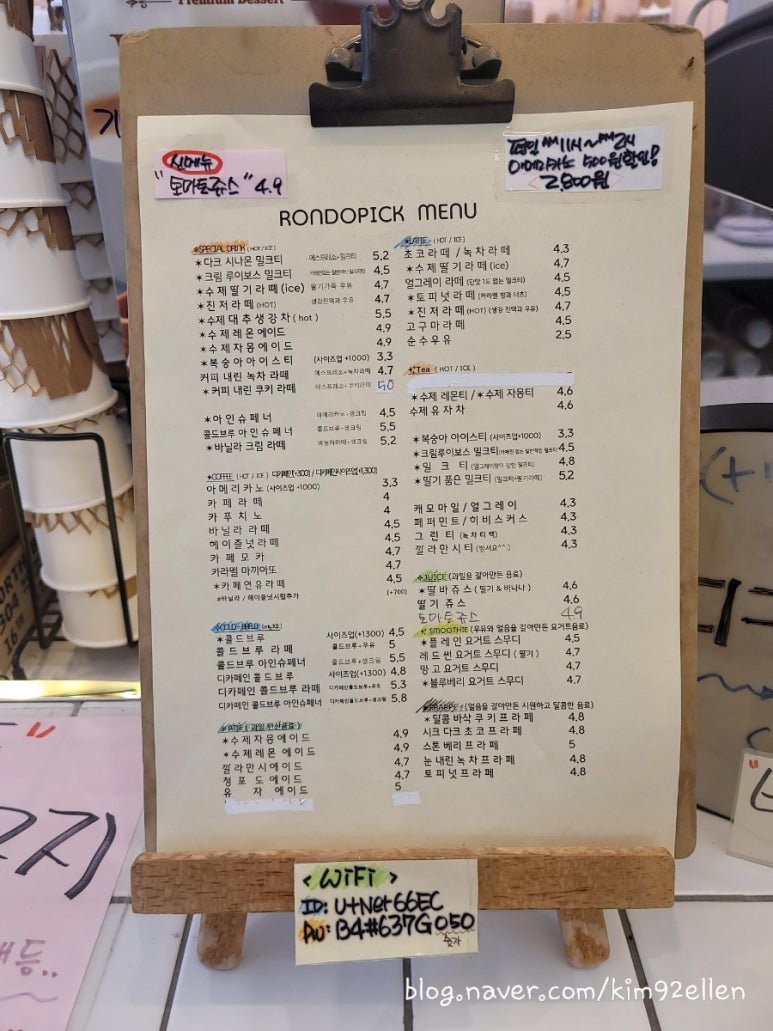 Premium Dessert
신메뉴
"토마토쥬스" 4.9
평일 11시~ 2시
아메리카노 500원할인!
2,800원
RONDOPICK MENU
*SPECIAL DRINK (HOT / ICE)
*다크 시나몬 밀크티 에스프레소+밀크티 5,2
*크림 루이보스 밀크티 4,5
*수제 딸기라떼 (ice) 딸기가득 우유 4.7
*진저라떼 (HOT) 생강진액과 우유 4.7
*수제 대추생강차 ( hot ) 5,5
*수제 레몬 에이드 4.9
*수제 자몽 에이드 4.9
*복숭아아이스티 (사이즈업 +1000) 3,3
커피 내린 녹차 라떼 에스프레소+녹차라떼 4.7
*커피 내린 쿠키 라떼 에스프레소+쿠키라떼 50
*아인슈페너 아메리카노+생크림 4,5
콜드브루 아인슈페너 콜드브루+생크림 5,5
*바닐라 크림 라떼 바닐라라떼+생크림 5,2
*COFFEE (HOT / ICE) 디카페인(+300) / 디카페인사이즈업+1,300)
아메리카노 (사이즈업 +1000) 3,3
카페라떼 4
카푸치노 4
바닐라 라떼 4,5
헤이즐넛라떼 4,5
카페모카 4.7
카라멜 마끼아또 4.7
*카페연유라떼 4,5
#바닐라 / 헤이즐넛시럽추가 (+700)
*콜드브루 사이즈업(+1300) 4,5
콜드브루 라떼 콜드브루+우유 5
콜드브루 아인슈페너 콜드브루+생크림 5,5
디카페인 콜드브루 사이즈업(+1300) 4.8
디카페인 콜드브루 라떼 디카페인콜드브루+우유 5,3
디카페인 콜드브루 아인슈페너 디카페인콜드브루+생크림 5,8
*수제자몽에이드 4.9
*수제레몬 에이드 4.9
깔라만시에이드 4.7
청포도에이드 4.7
유자에이드 5
*LATTE (HOT / ICE)
초코라떼 / 녹차라떼 4.3
*수제딸기라떼 (ice) 4.7
얼그레이 라떼 (단맛 1도 없는 밀크티) 4,5
*토피넛라떼 (카라멜 향과 너츠) 4,5
*진저라떼 (HOT) (생강 진액과 우유) 4.7
고구마라떼 4,5
순수우유 2,5
*Tea ( HOT / ICE )
*수제 레몬티 / *수제 자몽티 4.6
수제유자차 4.6
*복숭아 아이스티 (사이즈업 +1000) 3,3
*크림루이보스 밀크티 4,5
*밀크티 (얼그레이향이 강한 밀크티) 4,8
*딸기 품은 밀크티 (밀크티+딸기라떼) 5,2
캐모마일 / 얼그레이 4.3
페퍼민트 / 히비스커스 4.3
그린티 (녹차티백) 4.3
깔라만시티 4.3
*JUICE (과일을 갈아만든 음료)
*딸바쥬스 (딸기 & 바나나) 4.6
딸기쥬스 4.6
토마토쥬스 4.9
*SMOOTHIE (우유와 얼음을 갈아만든 요거트음료)
*플레인 요거트 스무디 4,5
레드썬 요거트 스무디 ( 딸기 ) 4.7
망고 요거트 스무디 4.7
*블루베리 요거트 스무디 4.7
(얼음을 갈아만든 시원하고 달콤한 음료)
*달콤 바삭 쿠키프라페 4,8
시크 다크 초코 프라페 4,8
스톤 베리프라페 5
눈내린 녹차프라페 4,8
토피넛프라페 4,8
<WiFi>
ID: U+Net66EC
PW: B4#637G050
숫자
blog.naver.com/kim92ellen